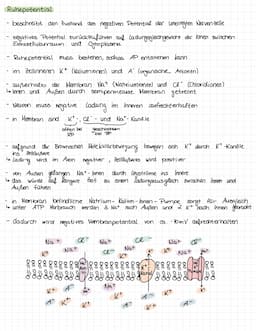 Ruhepotential
- beschreibt den Zustand des negativen Potential der unerregten Nervenzelle
- negatives Potential zurückzuführen auf Ladungsgleichgewicht der Ionen zwischen
Extrazellularraum und Cytoplasma
- Ruhepotential muss bestehen, sodass AP entstehen kann
- im Zellinnern K⁺ (Kaliumionen) und A⁻ (organische Anionen)
- außerhalb der Membran Na⁺ (Natriumionen) und Cl⁻ (Chloridionen)
↳ Innen und Außen durch semipermeable Membran getrennt
- Neuron muss negative Ladung im Inneren aufrechterhalten
- in Membran sind K⁺-, Cl⁻- und Na⁺-Kanäle
- aufgrund der Brownschen Molekularbewegung bewegen sich K⁺ durch K⁺-Kanäle
ins Zelläußere
↳ Ladung wird im Axon negativer, Zelläußeres wird positiver
- von Außen gelangen Na⁺-Ionen durch Lecks ins Innere
↳ das würde auf längere Zeit zu einem Ladungsausgleich zwischen Innen und
Außen führen
- in Membran befindliche Natrium-Kalium-Ionen-Pumpe sorgt für Ausgleich
↳ unter ATP Verbrauch werden 3 Na⁺ nach Außen und 2 K⁺ nach Innen gebracht
- dadurch wird negatives Membranpotential von ca. -70mV aufrechterhalten
Na⁺ Cl⁻ Na⁺ Cl⁻ Na⁺
K⁺ A⁻ K⁺ A⁻ K⁺